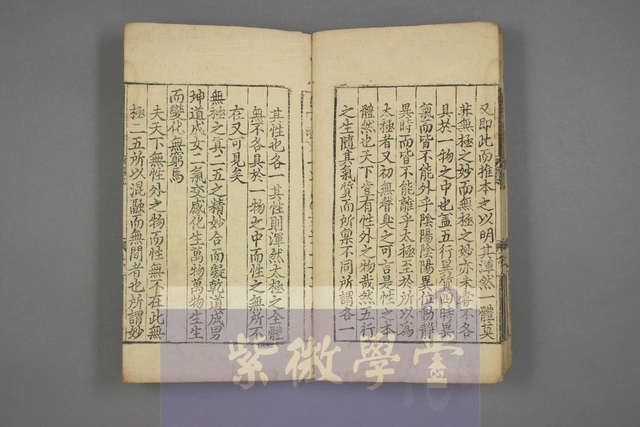 又即此而推本之以明其渾然一體莫
非無極之妙而無極之妙亦未嘗不各
具於一物之中也蓋五行異質四時異
氣而皆不能外乎陰陽陰陽異位動靜
異時而皆不能離乎太極至於所以為
太極者又初無聲臭之可言是性之本
體然也天下豈有性外之物哉然五行
之生隨其氣質而所稟不同所謂各一
其性也各一其性則渾然太極之全體
無不各具於一物之中而性之無所不
在又可見矣
無極之真二五之精妙合而凝乾道成男
坤道成女二氣交感化生萬物萬物生生
而變化無窮焉
夫天下無性外之物而性無不在此無
極二五所以混融而無間者也所謂妙
紫微學堂